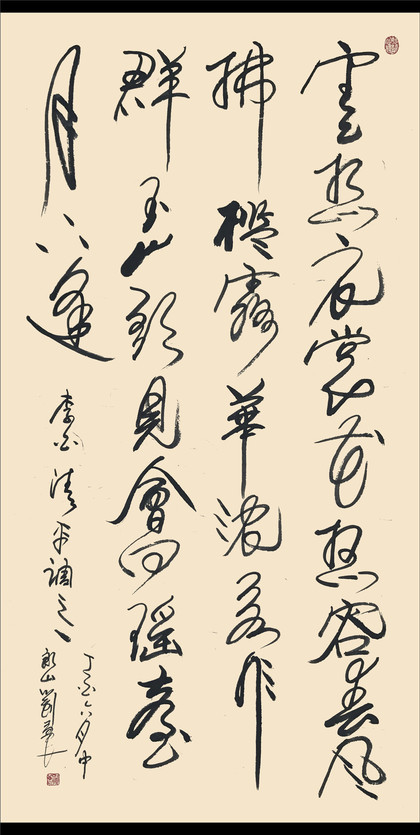 雲想衣裳花想容春風
拂檻露華濃若非
群玉山頭見會向瑤臺
月下逢
李白清平調之一
丁酉六月中
山劉